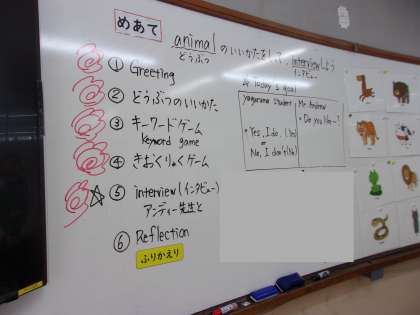 めあて
animalのいいかたをしって、interviewしよう
どうぶつ
インタビュー
☆ Today's goal
① Greeting
② どうぶつのいいかた
③ キーワードゲーム
Keyword game
④ きおくりょくゲーム
☆⑤ interview (インタビュー)
アンディー先生と
⑥ Reflection
ふりかえり
student
Mr. Andrew
・Do you like ~?
・Yes, I do. (Yes)
or
No, I don't (No)